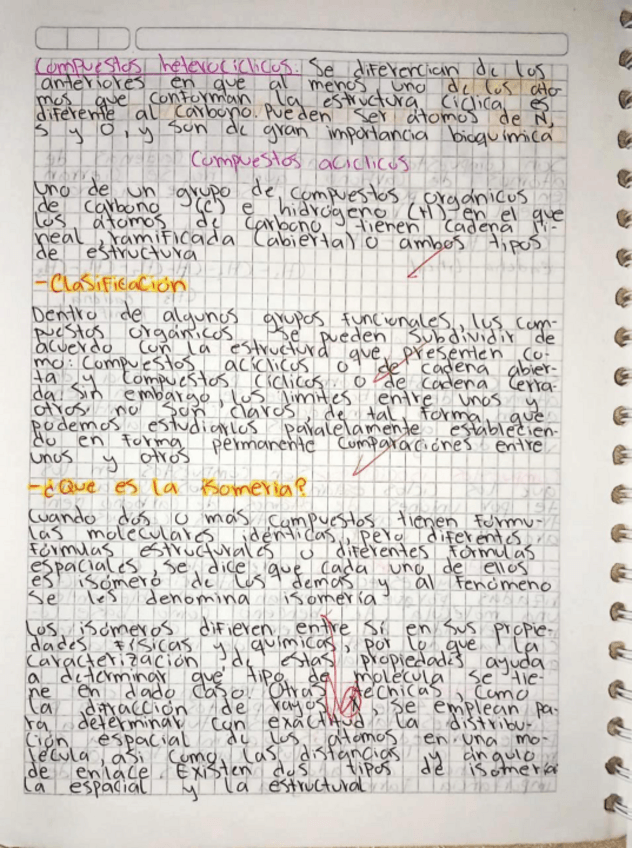 Compuestos heterociclicos: Se diferencian de los
anteriores en que al menos uno de los áto-
mos que conforman la estructura cíclica es
diferente al carbono. Pueden ser átomos de N,
S y O, y son de gran importancia bioquímica
Compuestos aciclicos
Uno de un grupo de compuestos orgánicos
de carbono (C) e hidrógeno (H) en el que
los átomos de carbono tienen cadena li-
neal, ramificada (abierta) o ambos tipos
de estructura
- Clasificación
Dentro de algunos grupos funcionales, los com-
puestos orgánicos se pueden subdividir de
acuerdo con la estructura que presenten co-
mo: Compuestos acíclicos o de cadena abier-
ta y compuestos cíclicos o de cadena cerra-
da. Sin embargo, los limites entre unos y
otros no son claros, de tal forma que
podemos estudiarlos paralelamente establecien-
do en forma permanente comparaciones entre
unos y otros
- ¿Que es la isomeria?
Cuando dos o más compuestos tienen fórmu-
las moleculares idénticas, pero diferentes
fórmulas estructurales o diferentes fórmulas
espaciales, se dice que cada uno de ellos
es isómero de los demás y al fenómeno
se les denomina isomería
Los isómeros difieren entre sí en sus propie-
dades físicas y químicas, por lo que la
caracterización de estas propiedades ayuda
a determinar que tipo de molécula se tie-
ne en dado caso. Otras técnicas, como
la difracción de rayos X, se emplean pa-
ra determinar con exactitud la distribu-
ción espacial de los átomos en una mo-
lécula, así como las distancias y ángulo
de enlace. Existen dos tipos de isomeria
la espacial y la estructural